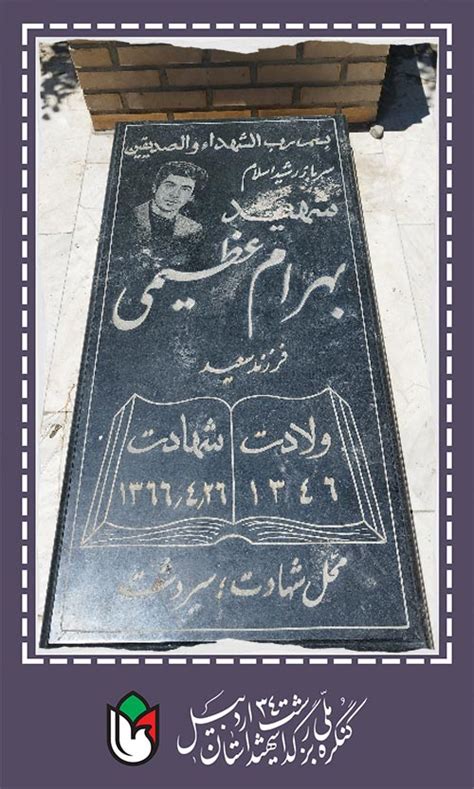 بسم رب الشهداء والصدیقین
سرباز رشید اسلام
شهید
بهرام عظیمی
فرزند سعید
ولادت
۱۳۴۶
شهادت
۱۳۶۶،۴،۲۶
محل شهادت؛ سردشت
کنگره ملی بزرگداشت ۳۴۰۰ شهید استان اردبیل